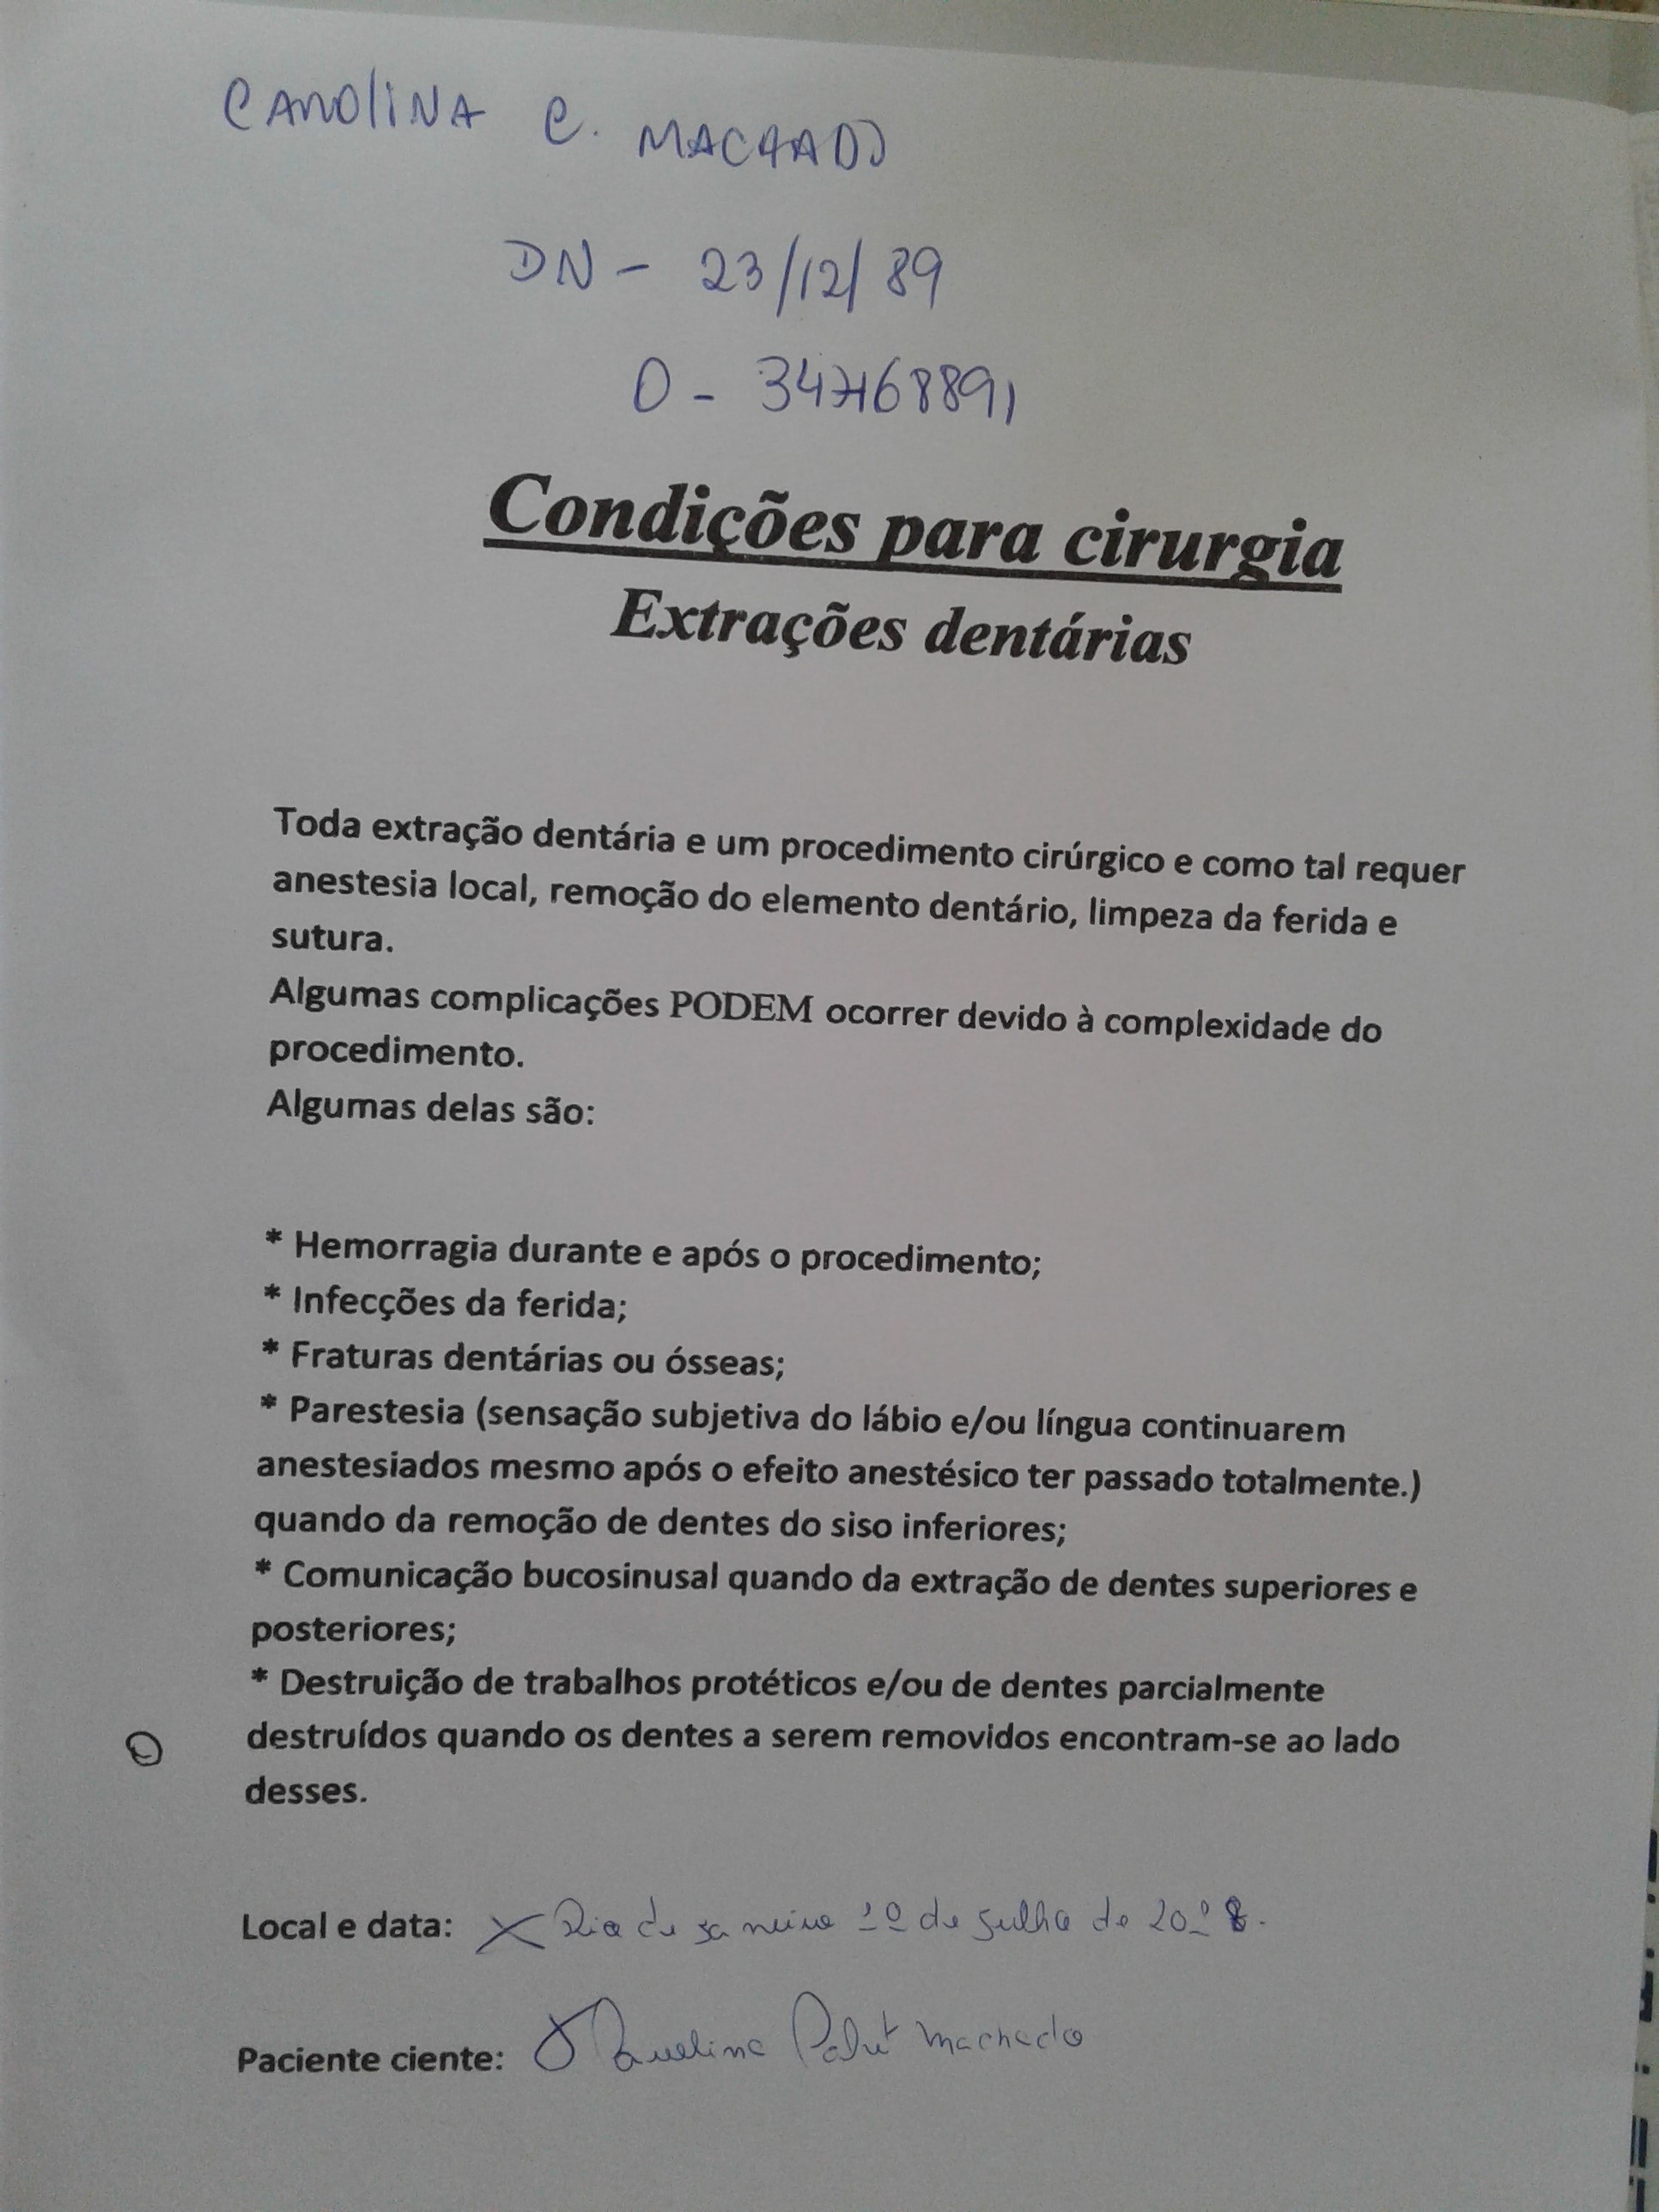 CAROLINA C. MACHADO
DN - 23/12/89
0 - 34768891
Condições para cirurgia
Extrações dentárias
Toda extração dentária e um procedimento cirúrgico e como tal requer
anestesia local, remoção do elemento dentário, limpeza da ferida e
sutura.
Algumas complicações PODEM ocorrer devido à complexidade do
procedimento.
Algumas delas são:
* Hemorragia durante e após o procedimento;
* Infecções da ferida;
* Fraturas dentárias ou ósseas;
* Parestesia (sensação subjetiva do lábio e/ou língua continuarem
anestesiados mesmo após o efeito anestésico ter passado totalmente.)
quando da remoção de dentes do siso inferiores;
* Comunicação bucosinusal quando da extração de dentes superiores e
posteriores;
* Destruição de trabalhos protéticos e/ou de dentes parcialmente
destruídos quando os dentes a serem removidos encontram-se ao lado
desses.
Local e data: X Rio de janeiro de julho de 2018.
Paciente ciente: Machado